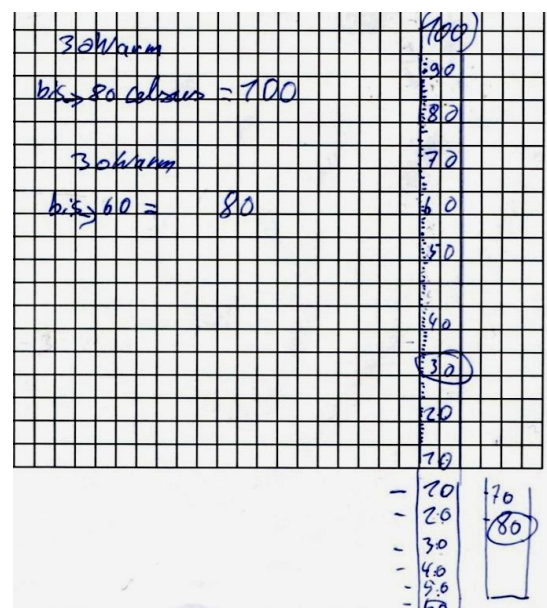 30 Warm
bis → 80 Celsius = 100
30 Warm
bis → 60 = 80
100
90
80
70
60
50
40
30
20
10
10
20
30
40
50
60
70
80